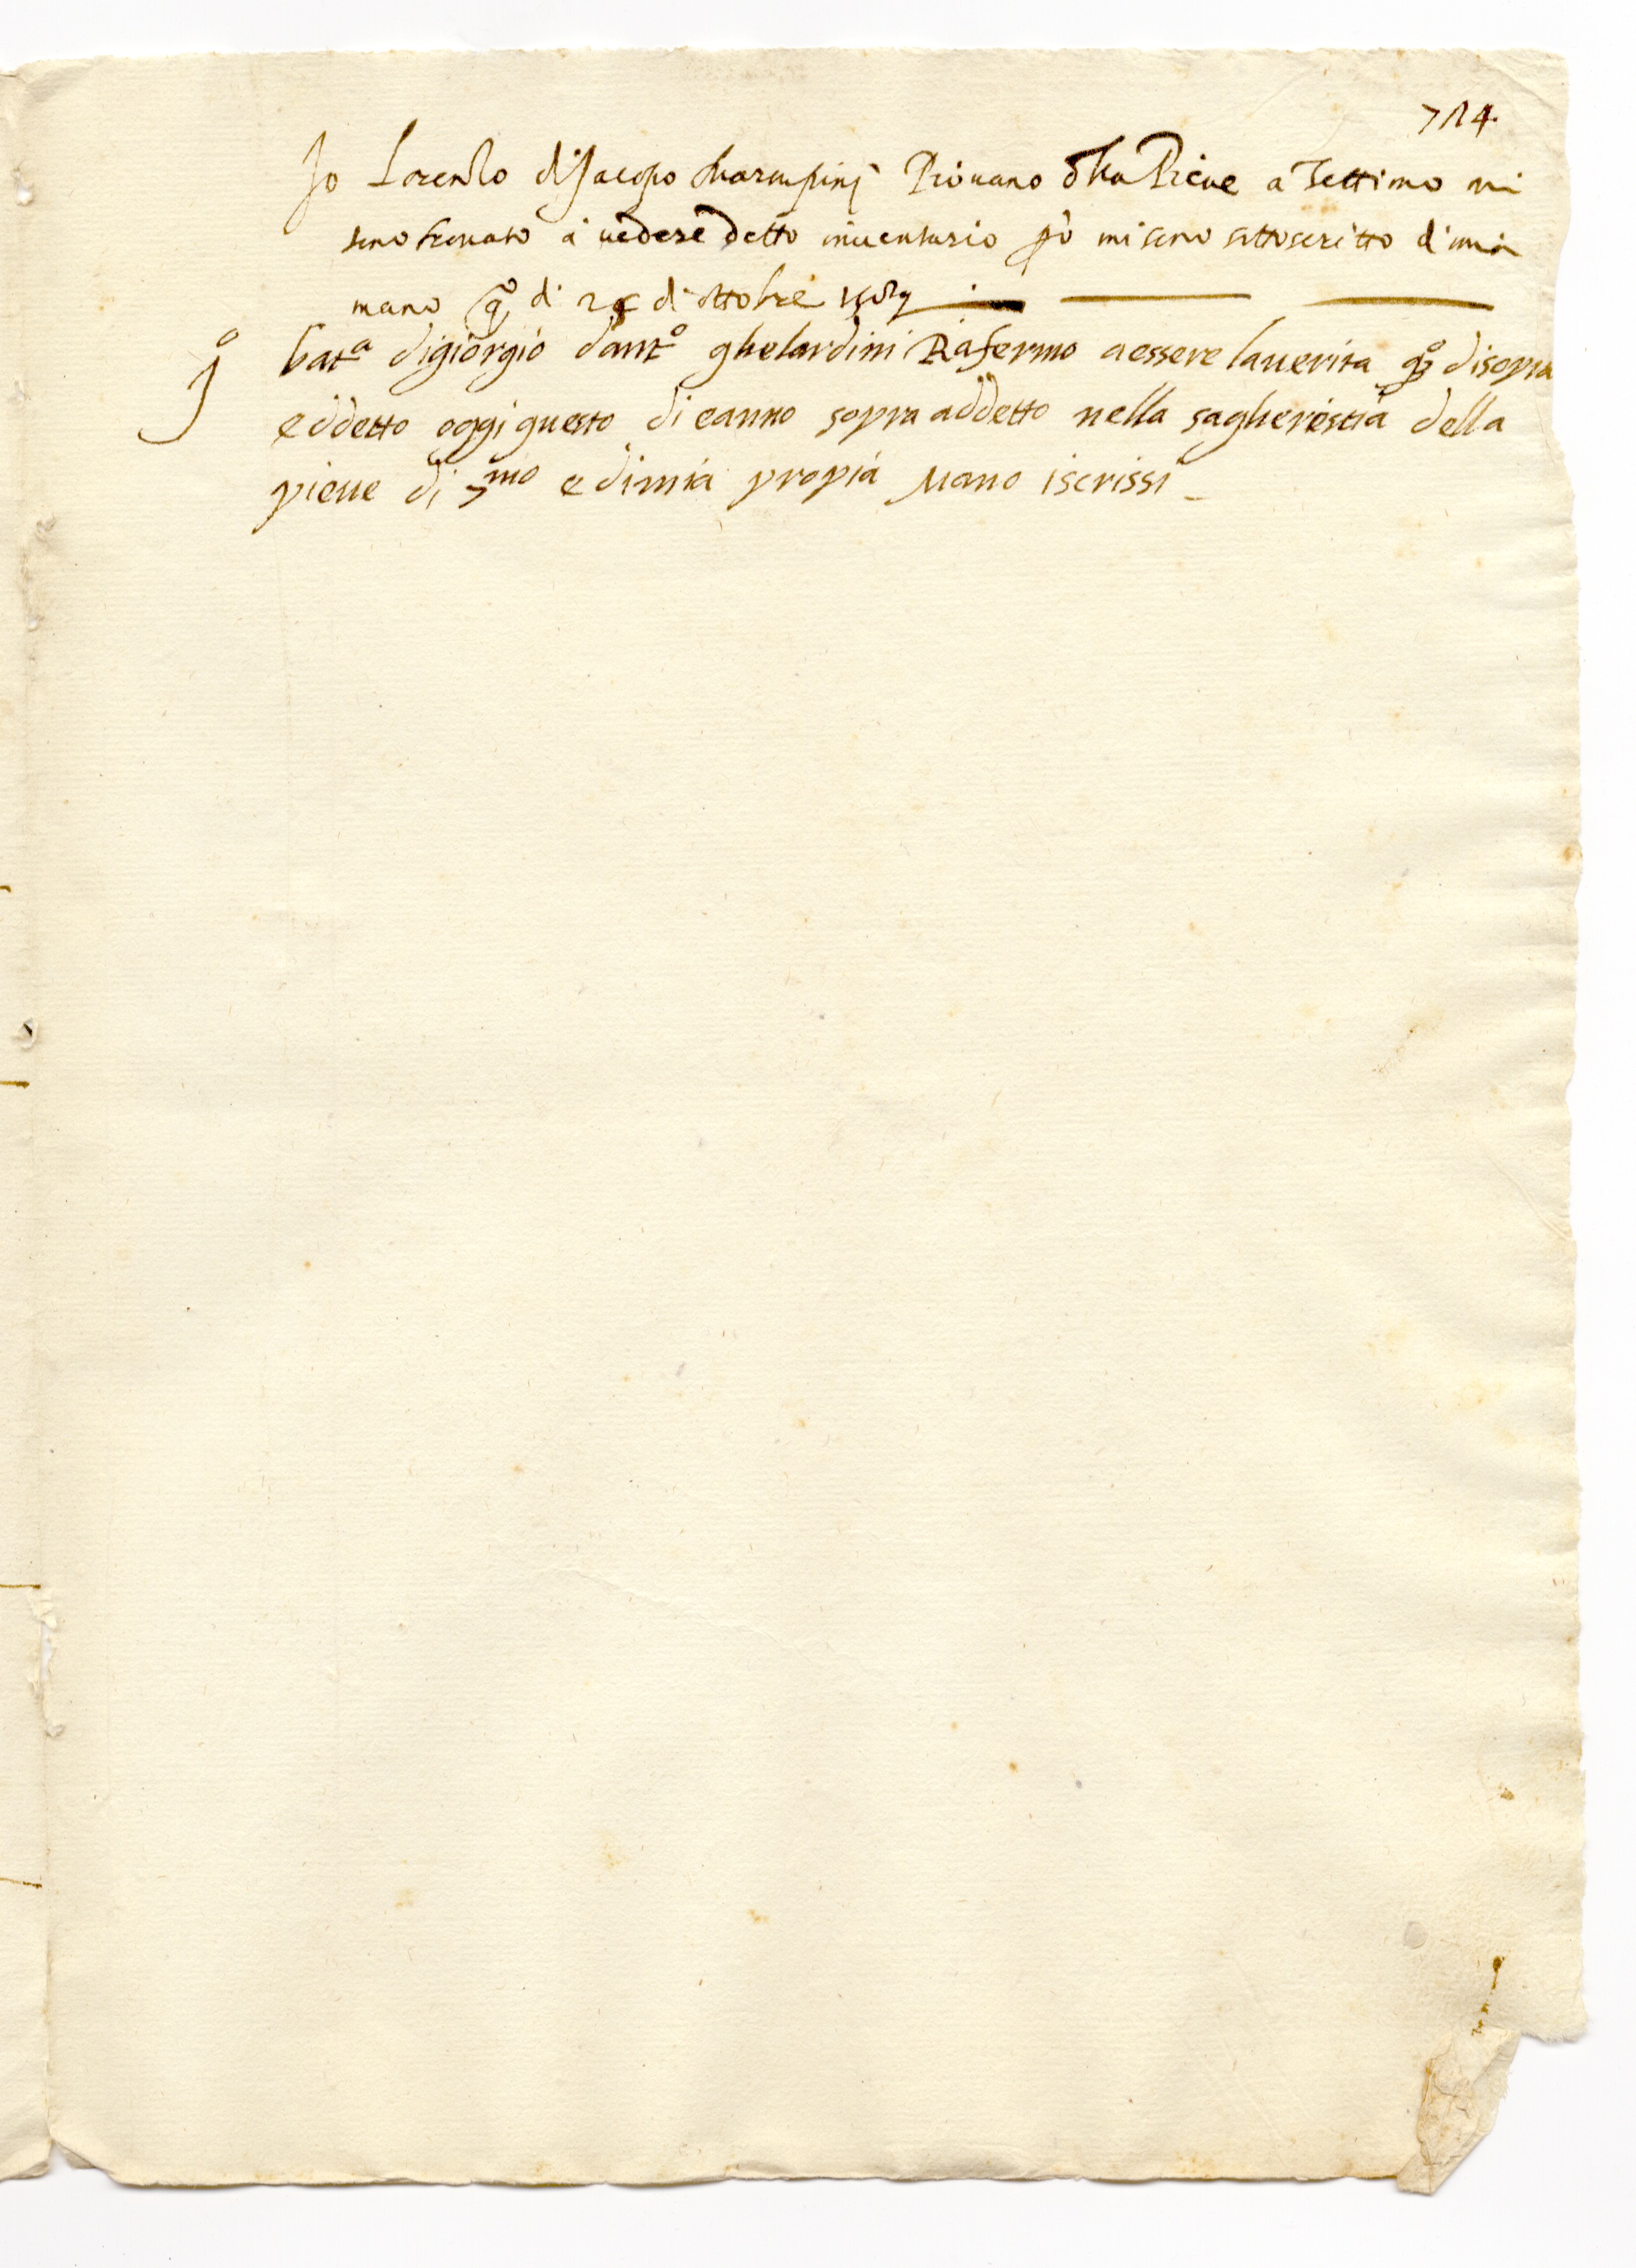 714.
Io Lorenzo di Jacopo Marsupinj Piovano d.ta Pieve a Settimo mi
sono trovato a vedere detto inventario p.ò mi sono sottoscritto di mia
mano q.o di 2 di ottobre
Jo bat.a digiorgio dant.o ghelardini Rafermo aessere laverita q.o disopra
eddetto oggi questo di eanno sopra addetto nella sagherestia della
pieve di 7.mo edimia propia mano iscrissi